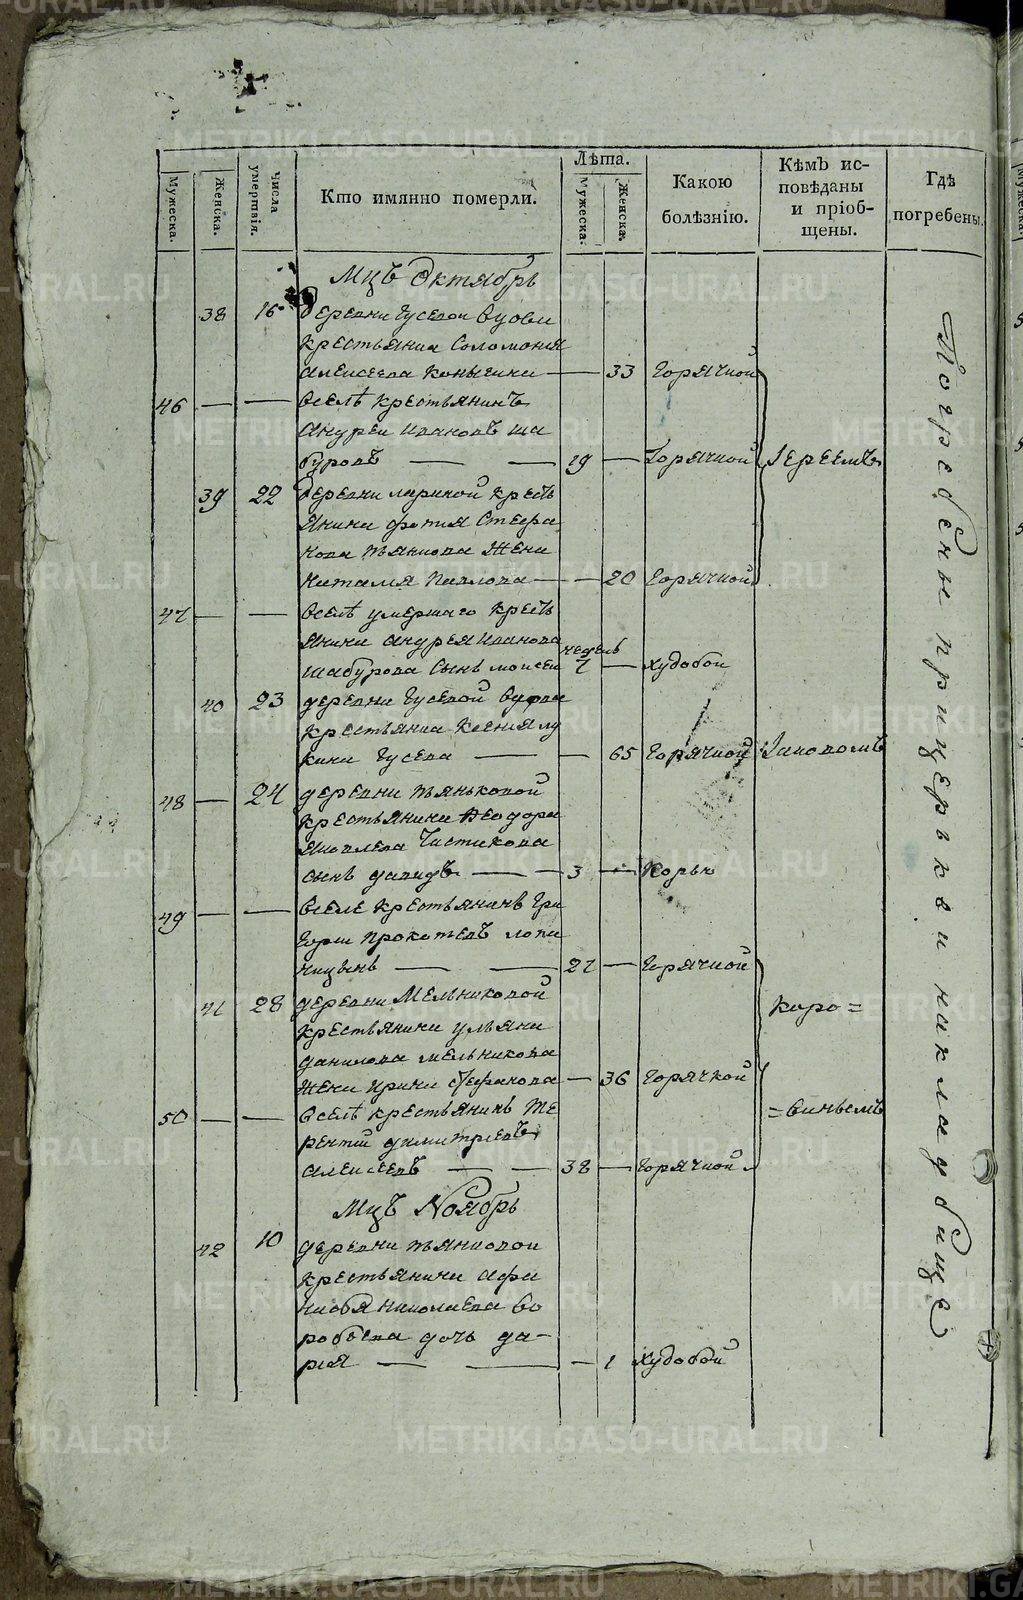 Мужеска.
Женска.
Числа умертвія.
Кто имянно померли.
Лѣта.
Мужеска.
Женска.
Какою болѣзнію.
Кѣмъ исповѣданы и пріобщены.
Гдѣ погребены.
Мцъ Октябрь
38 16 деревни Гусевой вдова
крестьянка Соломония
Алексеева — 33 Горячкой
46 — — в селѣ крестьянинъ
Андреи Ивановъ Ша
буровъ — — 19 — Горячкой Iереемъ
39 22 деревни Лариной кресть
янина Фотия Стефа
нова Тянкова жена
Наталя Павлова — — 20 Горячкой
47 — — в селѣ умершаго кресть
янина Андрея Иванова недель
Шабурова сынъ Моисеи 7 — худобой
40 23 деревни Гусевой вдова
крестьянка Ксения Лу
кина Гусева — — 65 Горячкой
48 — 24 деревни Тяньковой
крестьянина Феодора
Яковлева Чистякова
сынъ Давидъ — — 3 — Корью
49 — — в селе крестьянинъ Гри
гореи Прокопьевъ Лопа
ницынъ — — 27 — Горячкой
41 28 деревни Мельниковой Коро=
крестьянина Ульяна
Данилова Мельникова
жена Ирина Стефанова — 36 Горячкой
50 — — в селѣ крестьянинъ Те =виньемъ
рентий Димитриевъ
Алексеевъ — — 38 — Горячкой
Мцъ Ноябрь
42 10 деревни Тянковой
крестьянина Афа
насья Николаева Во
робьева дочь Да-
рия — — — 1 худобой
Погребены при церькви на кладбище
METRIKI.GASO-URAL.RU